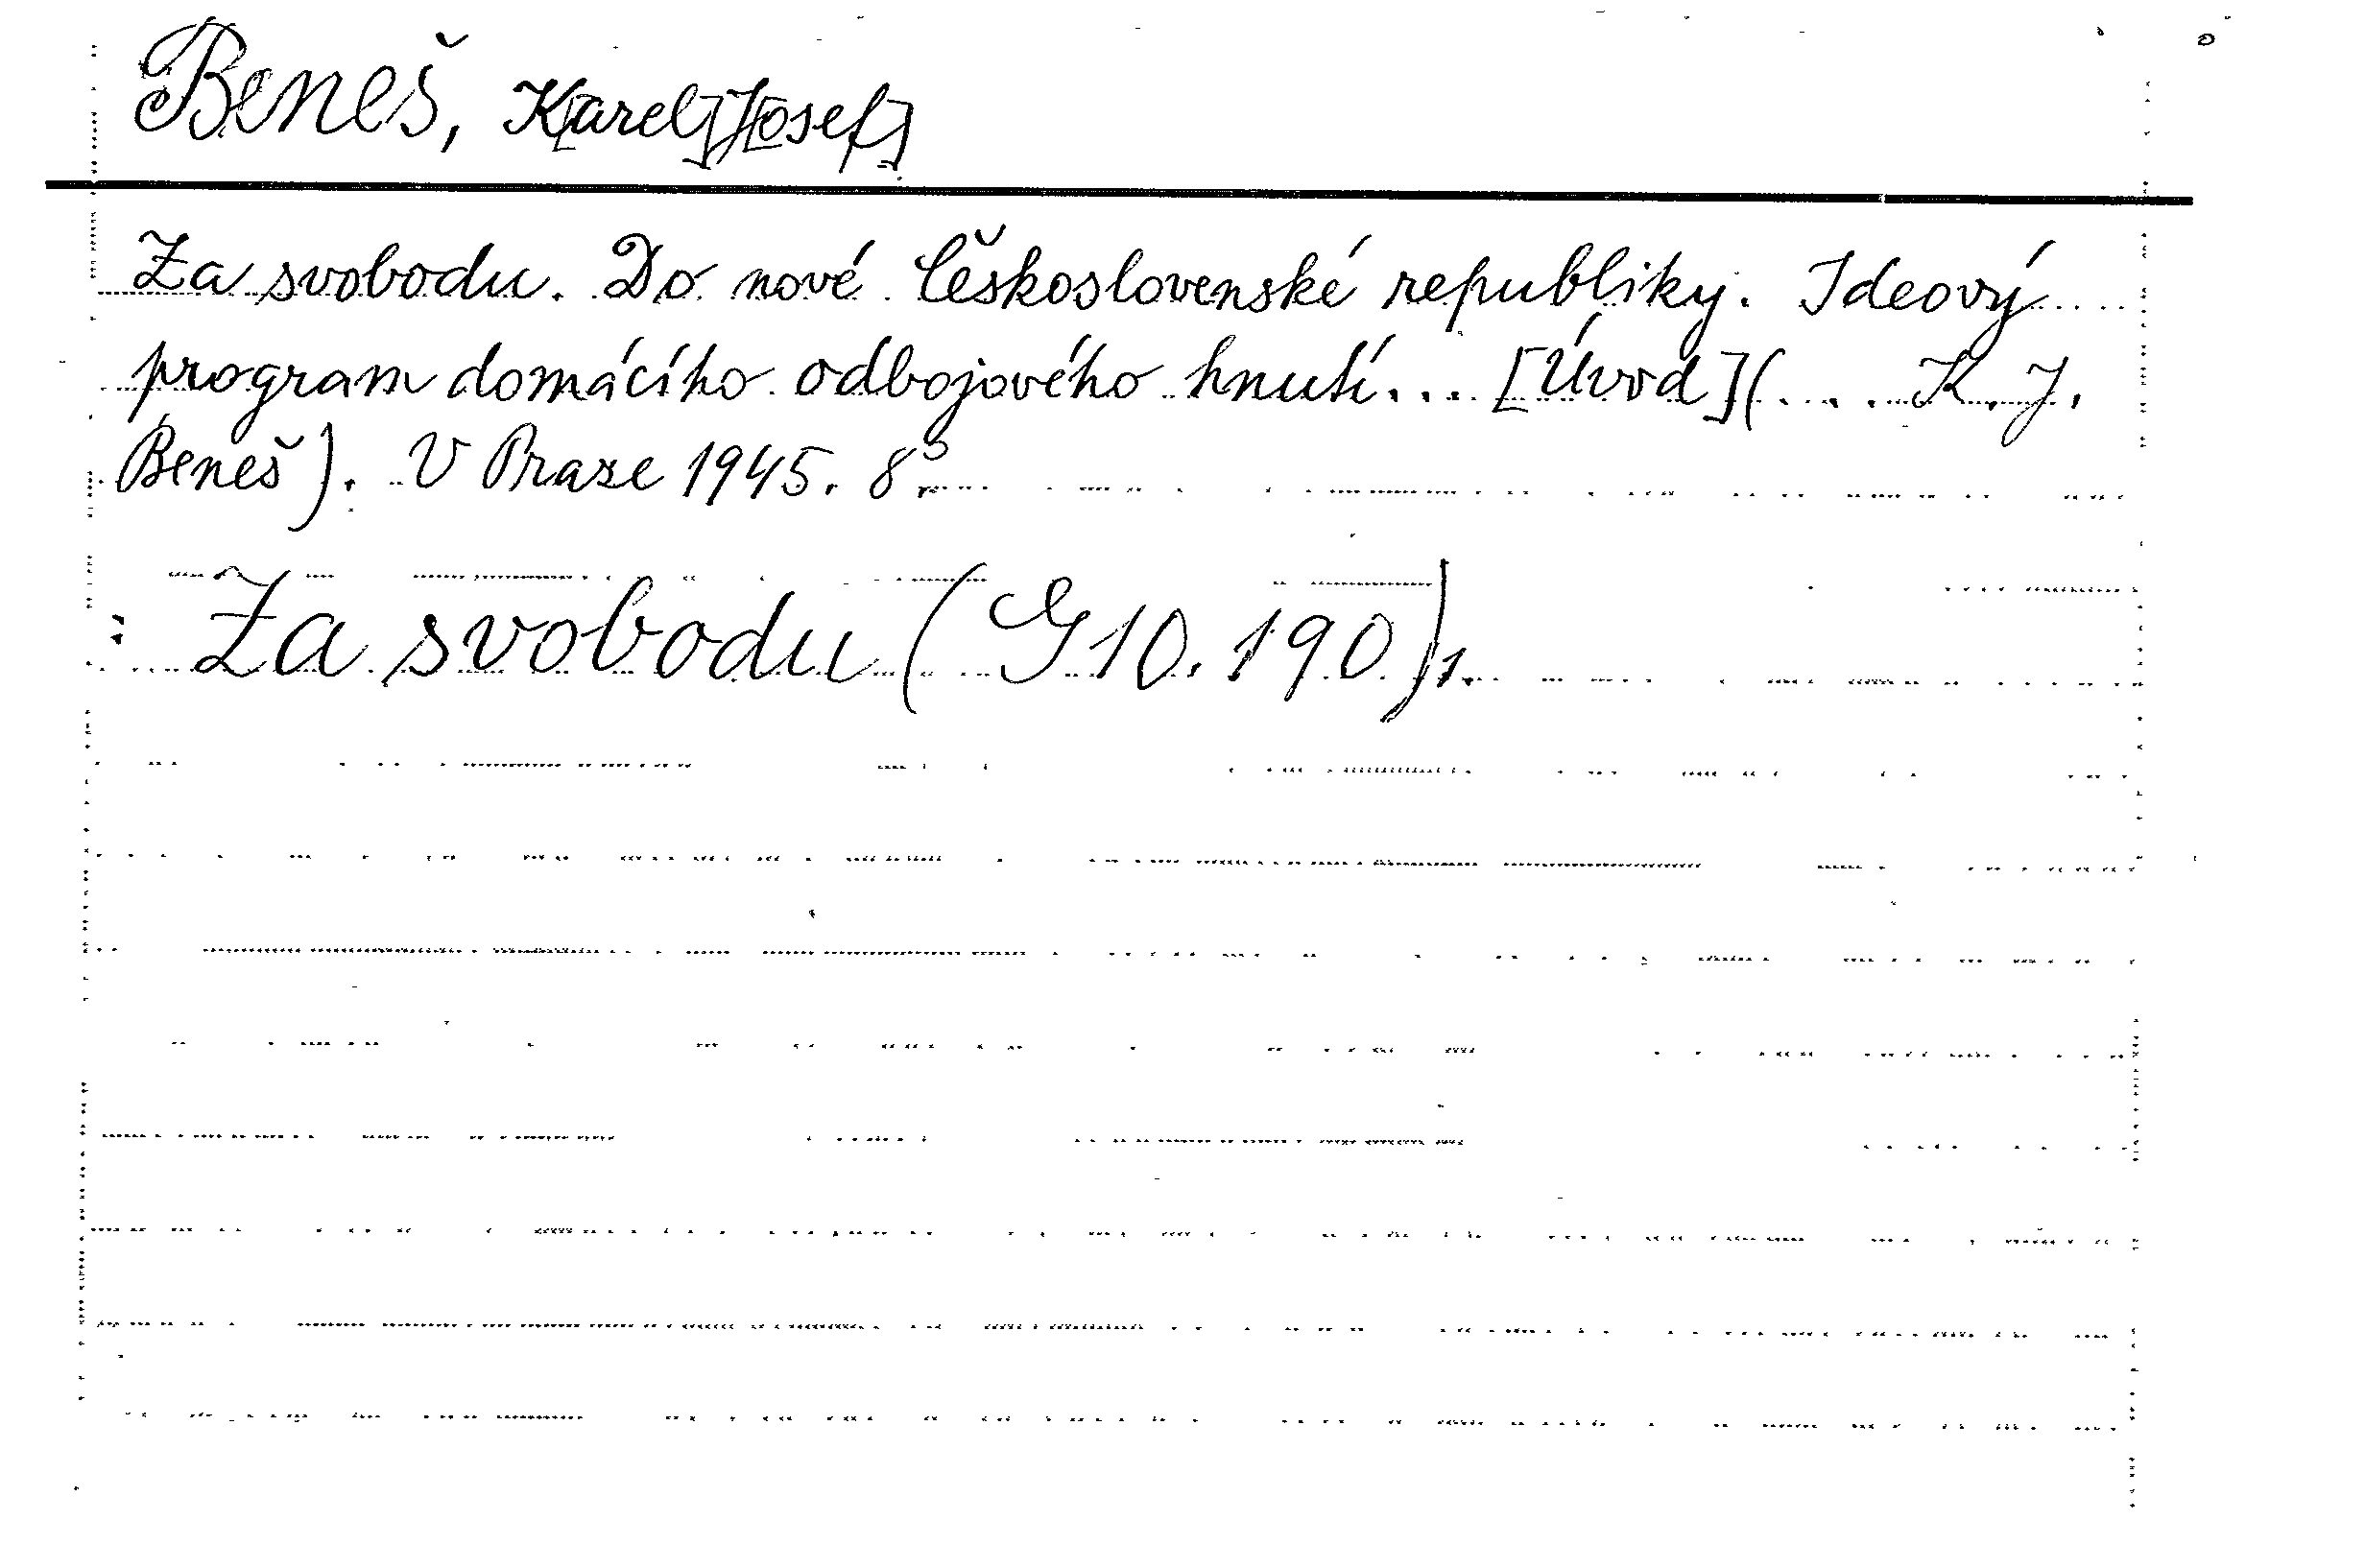 Beneš, K[arel] J[osef]
Za svobodu. Do nové Československé republiky. Ideový
program domácího odbojového hnutí... [Úvod] (... K. J.
Beneš). V Praze 1945. 8°.
: Za svobodu (G 10.190) 1.